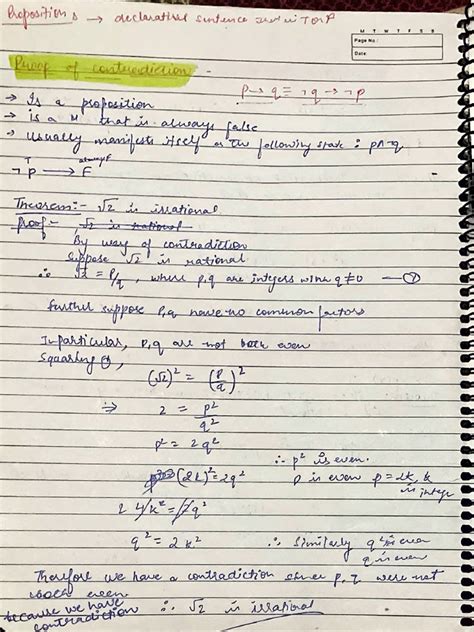 Propositions → declarative sentence T or F
M T W T F S S
Page No.:
Date:
Proof of contradiction -
p → q ≡ ¬q → ¬p
→ Is a proposition
→ is a that is always false
→ Usually manifests itself as the following state : p∧¬q
T always F
¬P → F
Theorem:- √2 is irrational
Proof- √2 is rational
By way of contradiction
Suppose √2 is rational
∴ √2 = P/q, where p,q are integers with q≠0 — ①
further suppose p,q have no common factors
In particular, p,q are not both even
Squaring ①,
(√2)² = (p/q)²
⇒ 2 = p²/q²
p² = 2q² ∴ p² is even.
(2k)² = 2q² p is even p = 2k, k is integer
2 4k² = 2q²
q² = 2k² ∴ Similarly q² is even
q is even
Therefore we have a contradiction since p, q were not
both even
because we have contradiction ∴ √2 is irrational